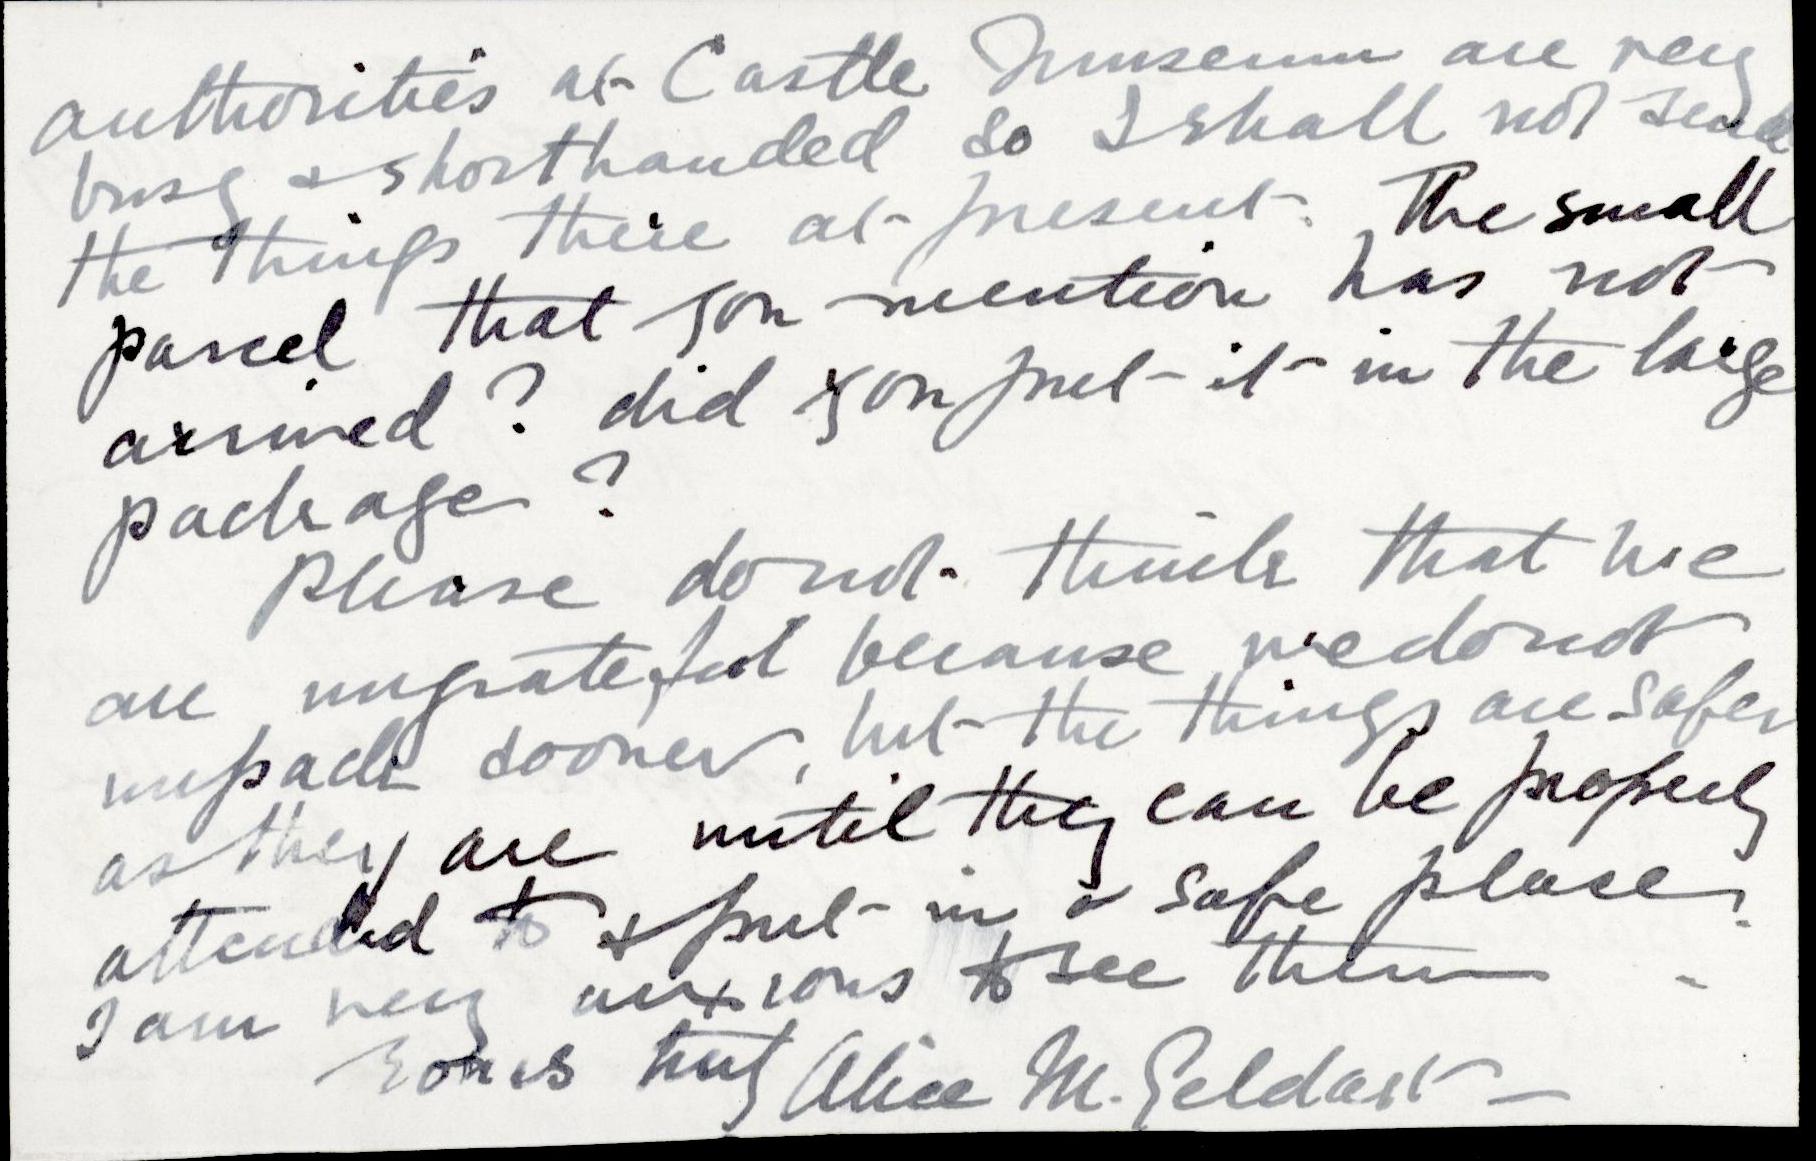 authorities at Castle Museum are very
busy & shorthanded so I shall not send
the things there at present. The small
parcel that you mention has not
arrived? did you put it in the large
package?
Please do not think that we
are ungrateful because we do not
unpack sooner, but the things are safer
as they are until they can be properly
attended to & put in a safe place.
I am very anxious to see them -
Yours truly Alice M. Geldart -